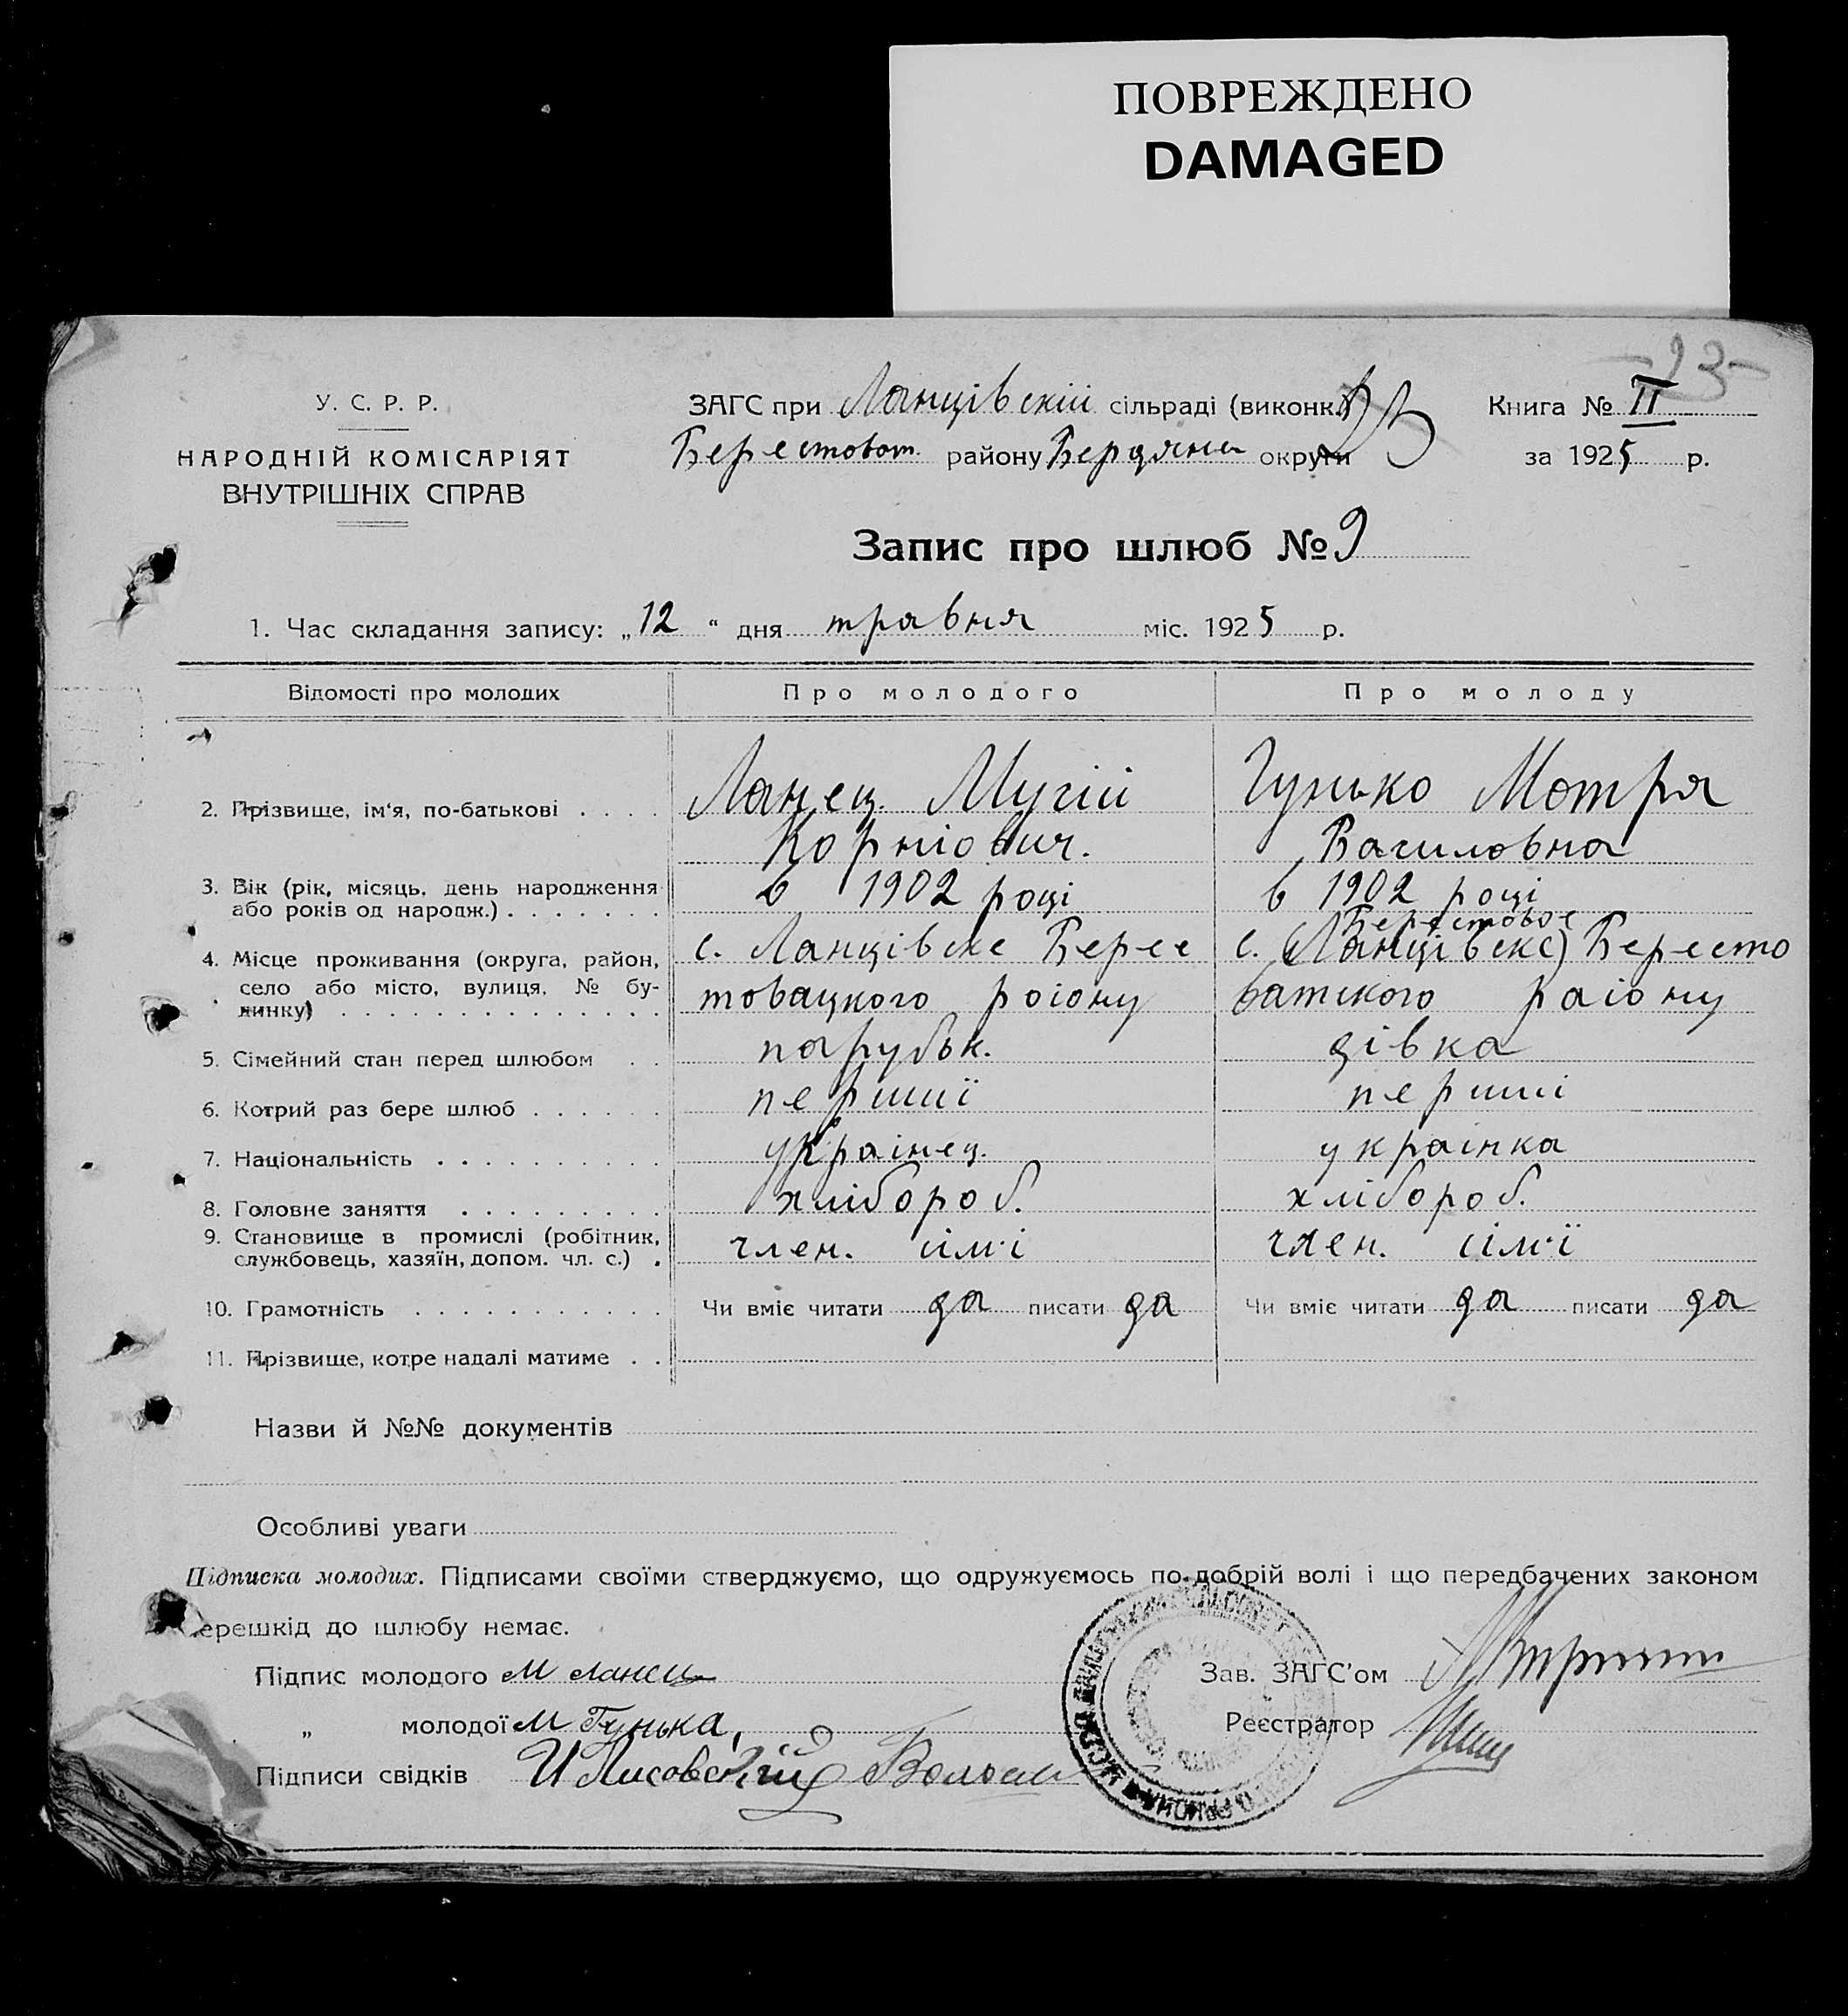 ПОВРЕЖДЕНО
DAMAGED
23
У. С. Р. Р.
НАРОДНІЙ КОМІСАРІЯТ
ВНУТРІШНІХ СПРАВ
ЗАГС при Ланцівскій сільраді (виконк.)
Берестоват. району Бердянск округи
23
Книга № II
за 1925 р.
Запис про шлюб № 9
1. Час складання запису: „12“ дня травня міс. 1925 р.
Відомості про молодих
Про молодого
Про молоду
2. Прізвище, ім‘я, по-батькові . . . .
Ланец. Мусій
Корніович.
Гунько Мотря
Василовна
3. Вік (рік, місяць, день народження
або років од народж.) . . . . . . .
в 1902 році
в 1902 році
4. Місце проживання (округа, район,
село або місто, вулиця, № бу-
динку) . . . . . . . . . . . . . .
с. Ланцівске Берес
товацкого роіону
Берестовое
с. (Ланцівске) Бересто
ватского раіону
5. Сімейний стан перед шлюбом . .
парубьк.
дівка
6. Котрий раз бере шлюб . . . . . .
першиї
перший
7. Національність . . . . . . . . . .
українец.
українка
8. Головне заняття . . . . . . . . .
хлібороб.
хлібороб.
9. Становище в промислі (робітник,
службовець, хазяїн, допом. чл. с.) .
член. сім'ї
член. сім'ї
10. Грамотність . . . . . . . . . . .
Чи вміє читати да писати да
Чи вміє читати да писати да
11. Прізвище, котре надалі матиме . .
Назви й №№ документів
Особливі уваги
Підписка молодих. Підписами своїми стверджуємо, що одружуємось по добрій волі і що передбачених законом
перешкід до шлюбу немає.
Підпис молодого М Ланец
Зав. ЗАГС'ом
„ молодої М Гунька,
Реєстратор
Підписи свідків И Лисовский